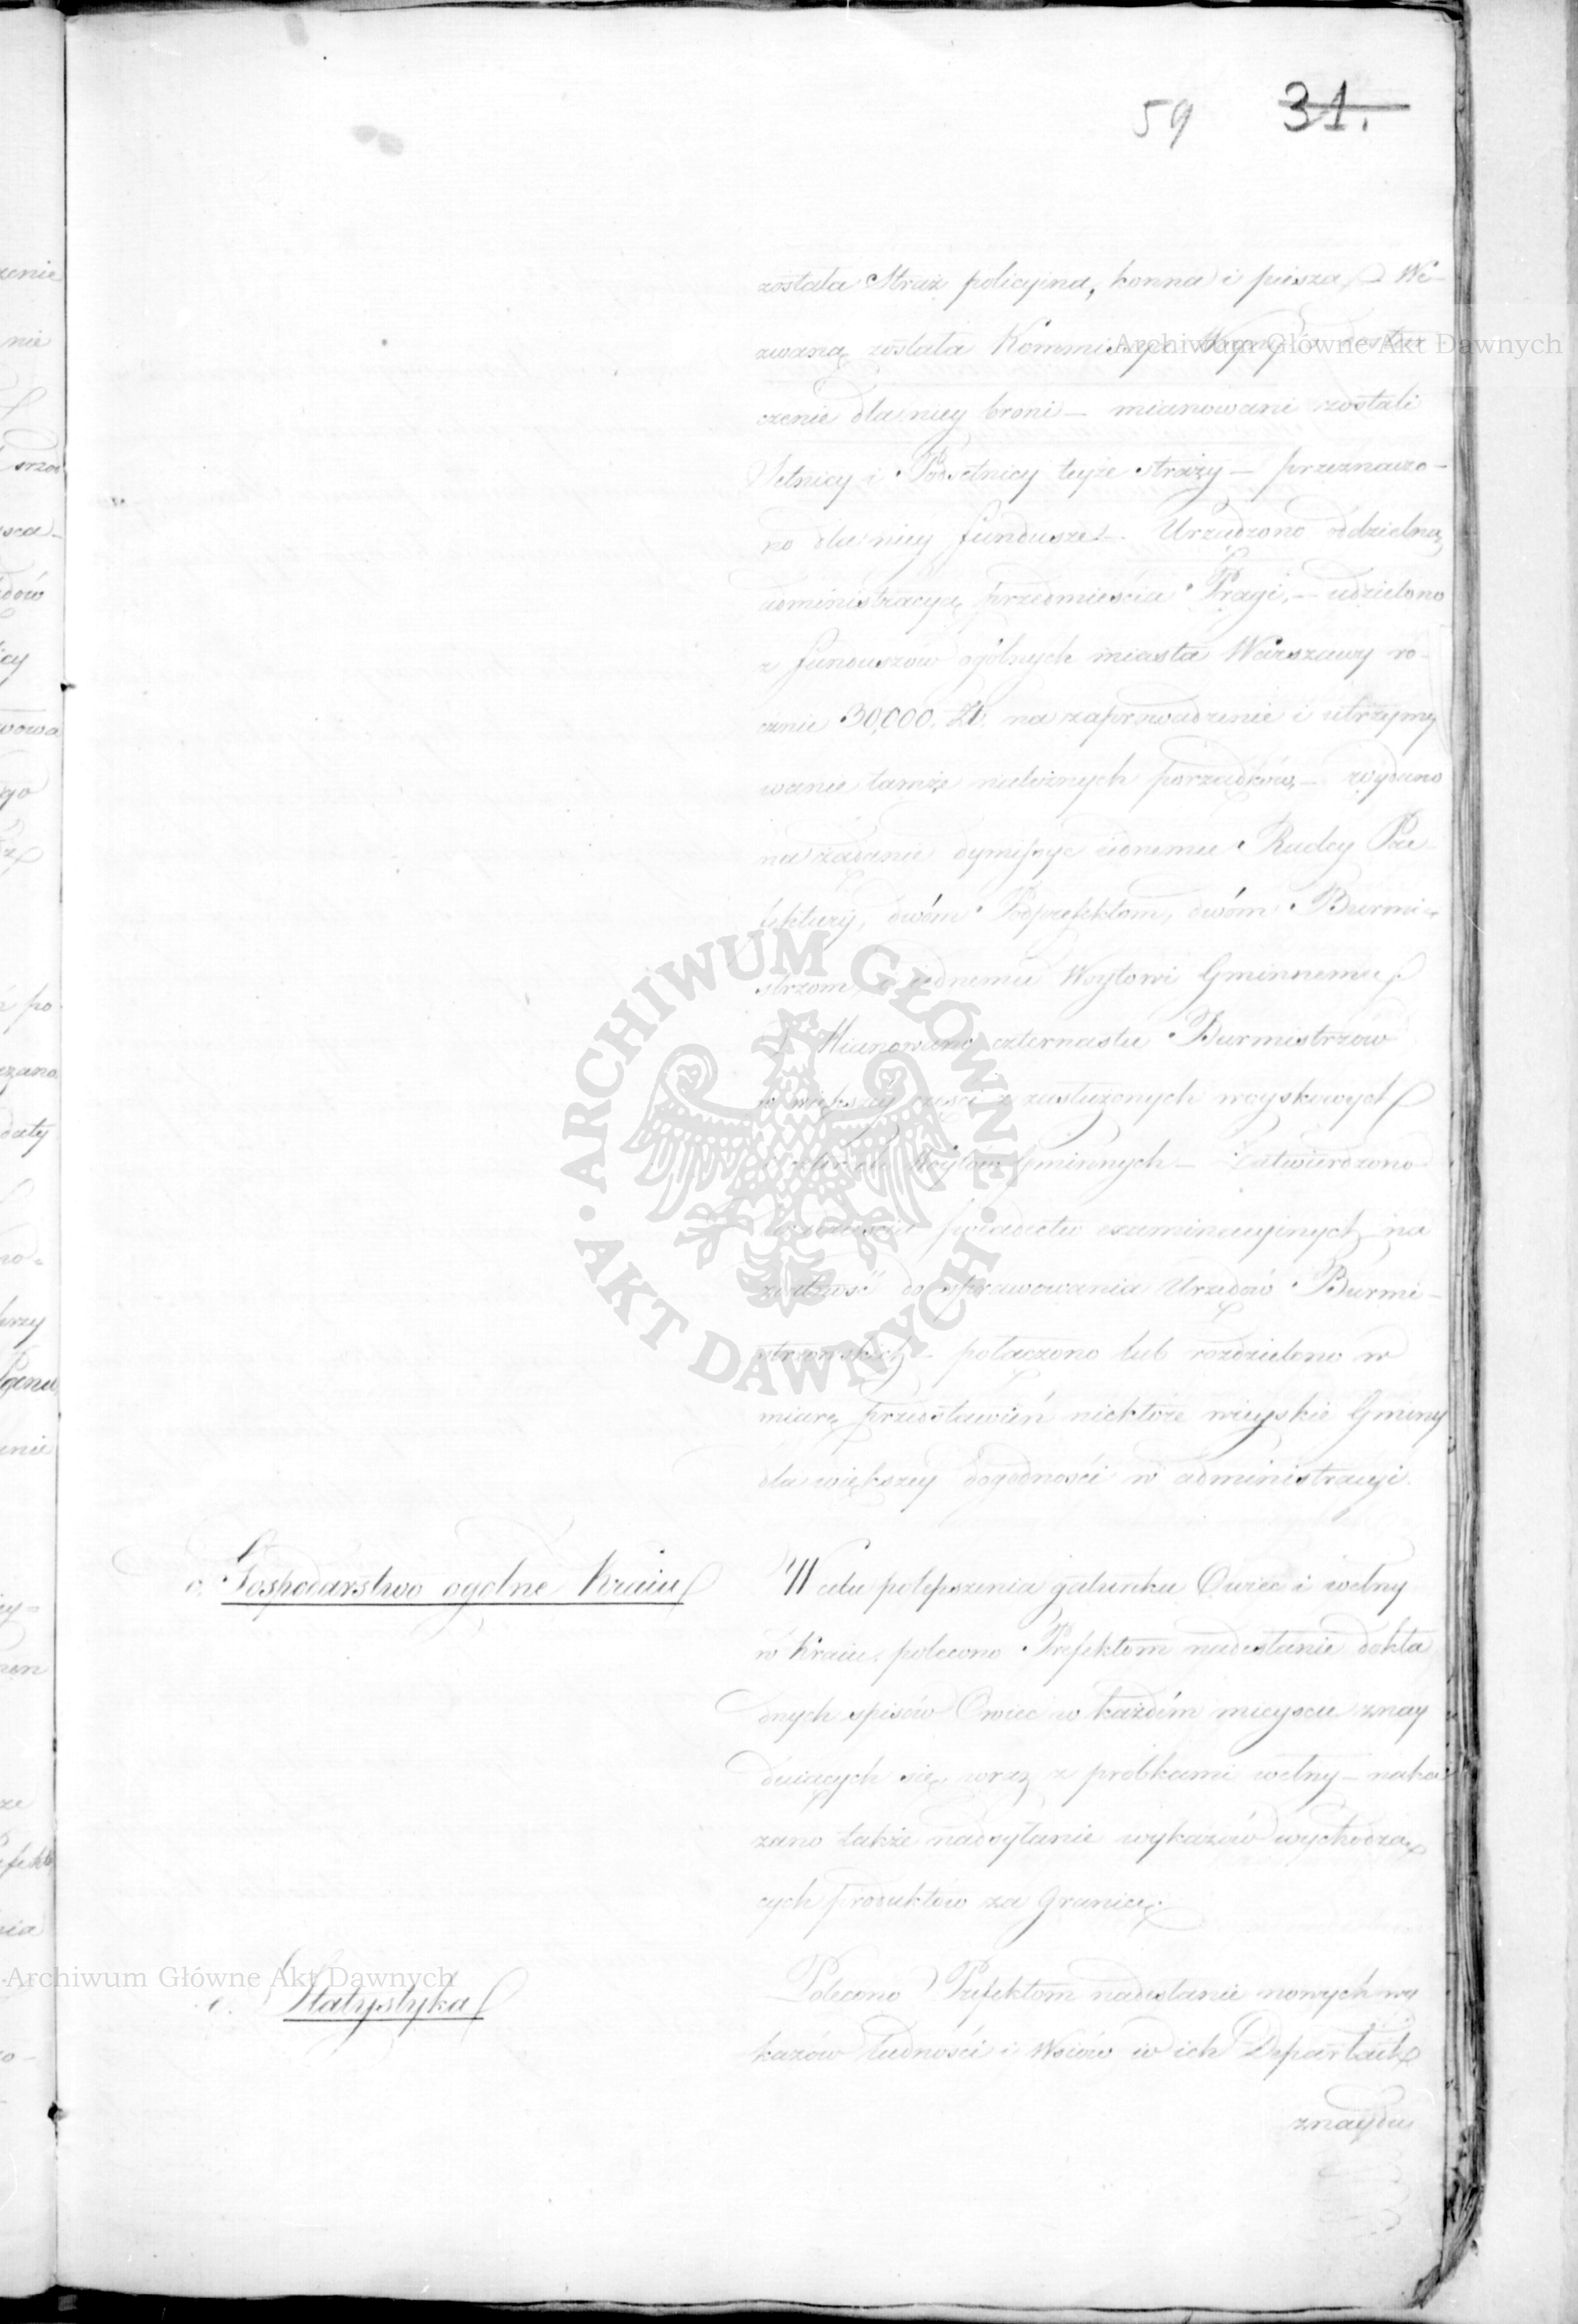 59 31.
została Straż policyina, konna i piesza, We-
zwaną została Kommissya Woyny o dostar-
czenie dla niey broni – mianowani zostali
Setnicy i Podsetnicy teyże straży – przeznaczo-
no dla niey fundusze. – Urządzono oddzielną
administracyą przedmieścia Pragi, – udzielono
z funduszów ogólnych miasta Warszawy ro-
cznie 30,000. Zł. na zaprowadzenie i utrzymy
wanie tamże należnych porządków, – wydano
na żądanie dymissye iednemu Radcy Pre-
fektury, dwóm Podprefektom, dwóm Burmi-
strzom, i iednemu Woytowi Gminnemu,
Mianowano czternastu Burmistrzów
w większéy części z zasłużonych woyskowych
Woytów Gminnych – Zatwierdzono
świadectw examinacyinych na
zdatność do sprawowania Urzędów Burmi-
strzowskich – połączono lub rozdzielono w
miarę przedstawień niektóre wieyskie Gminy
dla większey dogodności w administracyi.
Gospodarstwo ogólne Kraiu
W celu polepszenia gatunku Owiec i wełny
w Kraiu, polecono Prefektom nadesłanie dokła
dnych spisów Owiec w każdém mieyscu znay
duiących się, wraz z próbkami wełny – naka
zano także nadsyłanie wykazów wychodzą
cych produktów za Granicę.
e. Statystyka
Polecono Prefektom nadesłanie nowych wy
kazów ludności i Wsiów w ich Departach
znaydu
Archiwum Główne Akt Dawnych
Archiwum Główne Akt Dawnych
ARCHIWUM GŁÓWNE AKT DAWNYCH